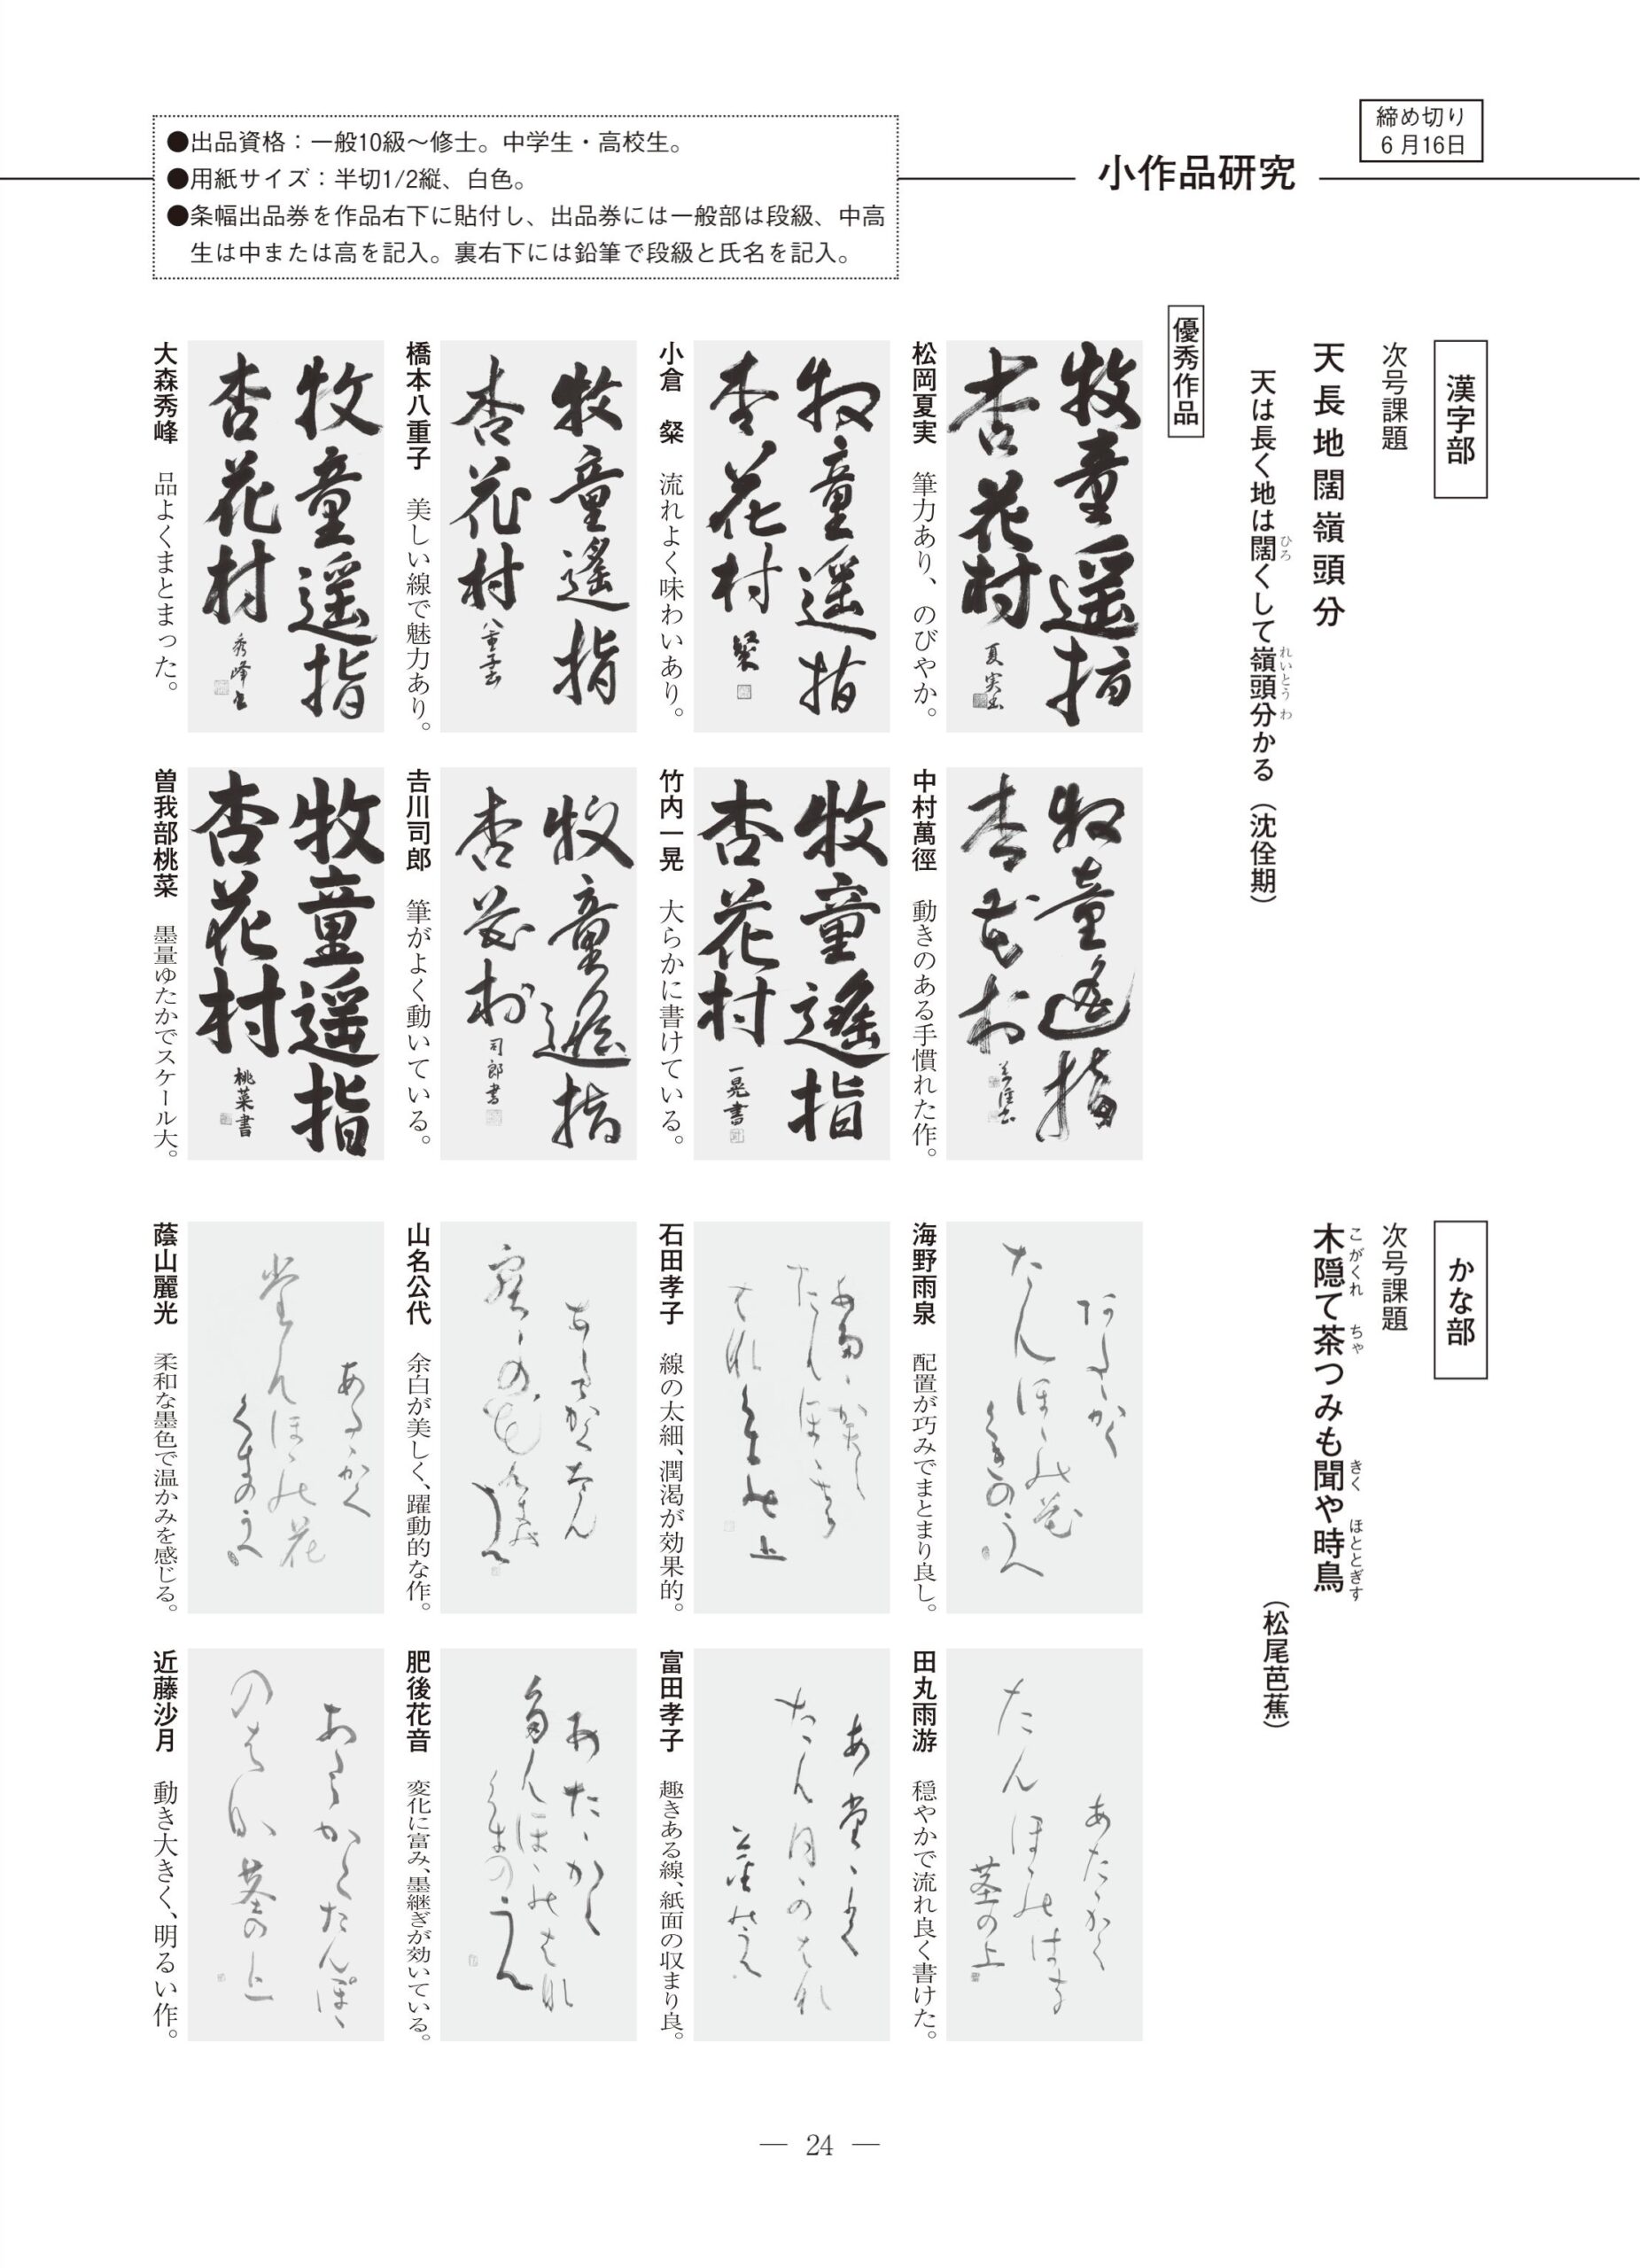 締め切り
6月16日
小作品研究
●出品資格：一般10級～修士。中学生・高校生。
●用紙サイズ：半切1/2縦、白色。
●条幅出品券を作品右下に貼付し、出品券には一般部は段級、中高
生は中または高を記入。裏右下には鉛筆で段級と氏名を記入。
漢字部
次号課題
天長地闊嶺頭分
天は長く地は闊くして嶺頭分かる（沈佺期）
ひろ
れいとう わ
優秀作品
牧童遥指
杏花村
夏実書
松岡夏実 筆力あり、のびやか。
牧童遥指
杏花村
粲
小倉 粲 流れよく味わいあり。
牧童遙指
杏花村
八重子書
橋本八重子 美しい線で魅力あり。
牧童遥指
杏花村
秀峰書
大森秀峰 品よくまとまった。
牧童遙指
杏花村
中村萬徑 動きのある手慣れた作。
牧童遙指
杏花村
一晃書
竹内一晃 大らかに書けている。
牧童遙指
杏花村
司郎書
吉川司郎 筆がよく動いている。
牧童遥指
杏花村
桃菜書
曽我部桃菜 墨量ゆたかでスケール大。
かな部
次号課題
木隠て茶つみも聞や時鳥
こがくれ ちゃ きく ほととぎす
（松尾芭蕉）
海野雨泉 配置が巧みでまとまり良し。
石田孝子 線の太細、潤渇が効果的。
山名公代 余白が美しく、躍動的な作。
蔭山麗光 柔和な墨色で温かみを感じる。
あたゝかく
たんほゝのはな
茎の上
田丸雨游 穏やかで流れ良く書けた。
富田孝子 趣きある線、紙面の収まり良。
肥後花音 変化に富み、墨継ぎが効いている。
近藤沙月 動き大きく、明るい作。
— 24 —